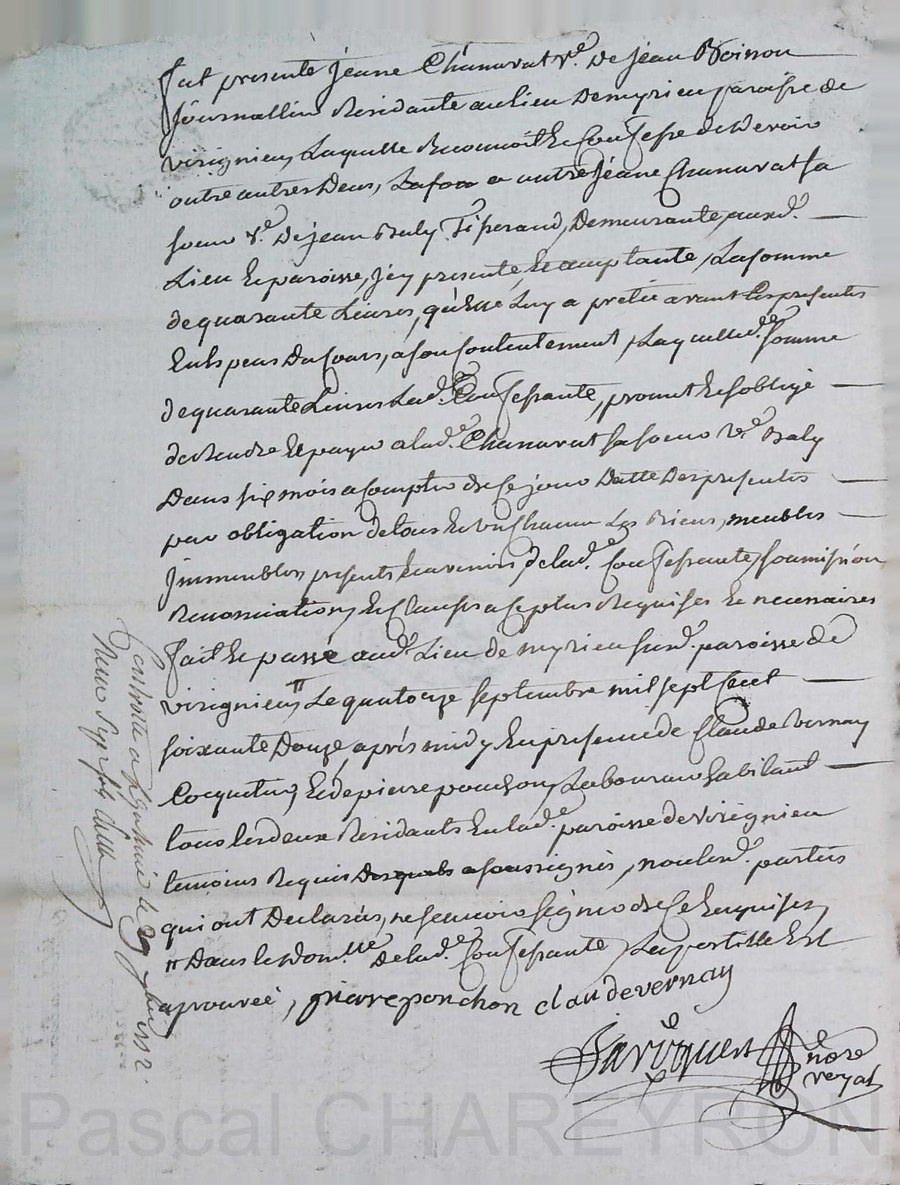 fut presente jeane Chanavat v.e De jean Poisson
journallier Residante au lieu De myrieu paroisse de
virignieu, Laquelle Reconnoit et Confesse de devoir
outre autres Deus, a autre jeane Chanavat sa
soeur v.e De jean Baly Tisserand, Demeurante aux d.
Lieu et paroisse, jcy presente, et acceptante, La somme
de quarante Livres, qu'elle Luy a pretée avant Les presentes
du Cours, a son Contentement, Laquelle d.e somme
de quarante Livres Lad.e Confessante, promet et s'oblige
de Rendre et payer a lad.e Chanavat sa soeur v.e Baly
Dans six mois a Compter de Ce jour Datte Des presentes
par obligation de tous et un Chacun Les Biens, meubles
jmmeubles, presents et avenirs, de lad.e Confessante, soumission
Renonciations, et Clauses a Ce plus Requises et necenaires
fait et passé aud. Lieu de myrieu sus d. paroisse de
virignieu, " Le quatorze septembre mil sept Cent
soixante Douze, après midy En presence de Claude Vernay
Cocquetier, Et de pierre ponchon, Laboureur habitant
tous les deux Residants En lad.e paroisse de virignieu
temoins Requis soussignés, non les d. parties
qui ont Declarés, ne scavoir signer de Ce Enquises,
" Dans le Dom.lle De lad.e Confessante, La postille Est
aprouvée, pierre ponchon claude vernay
nore
royal
Pascal CHAREYRON